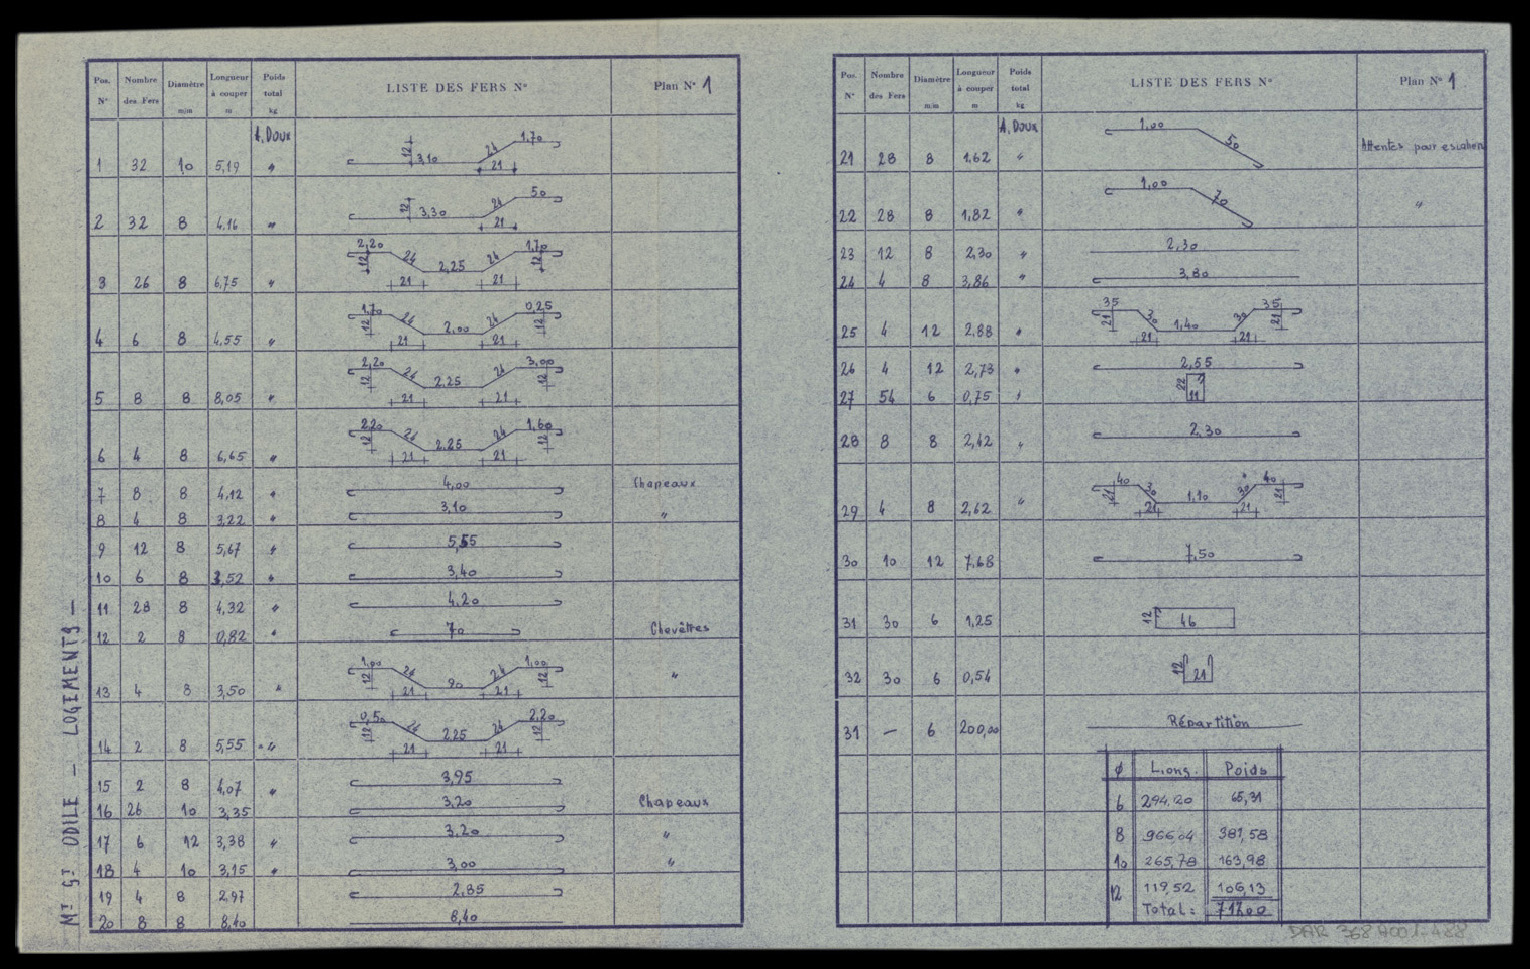 Mt St ODILE - LOGEMENTS -
Pos. N° Nombre des Fers Diamètre m/m Longueur à couper m Poids total kg LISTE DES FERS N° Plan N° 1
A. Doux
1 32 10 5,19 " 12 3,10 24 21 1,70
2 32 8 4,14 " 12 3,30 24 21 50
3 26 8 6,75 " 2,20 12 24 21 2,25 24 21 1,70 12
4 6 8 4,55 " 1,70 12 24 21 2,00 24 21 0,25 12
5 8 8 8,05 " 2,20 12 24 21 2,25 24 21 3,00 12
6 4 8 6,65 " 2,20 12 24 21 2,25 24 21 1,60 12
7 8 8 4,12 " 4,00 Chapeaux
8 4 8 3,22 " 3,10 "
9 12 8 5,67 " 5,55
10 6 8 3,52 " 3,40
11 28 8 4,32 " 4,20
12 2 8 0,82 " 70 Chevêtres
13 4 8 3,50 " 1,00 12 24 21 90 24 21 1,00 12 "
14 2 8 5,55 " 0,50 12 24 21 2,25 24 21 2,20 12
15 2 8 4,07 " 3,95
16 26 10 3,35 3,20 Chapeaux
17 6 12 3,38 " 3,20 "
18 4 10 3,15 " 3,00 "
19 4 8 2,97 2,85
20 8 8 8,40 8,40
Pos. N° Nombre des Fers Diamètre m/m Longueur à couper m Poids total kg LISTE DES FERS N° Plan N° 1
A. Doux
21 28 8 1,62 " 1,00 50 Attentes pour escaliers
22 28 8 1,82 " 1,00 70 "
23 12 8 2,30 " 2,30
24 4 8 3,86 " 3,80
25 4 12 2,88 " 35 21 30 21 1,40 30 21 35 21
26 4 12 2,73 " 2,55
27 54 6 0,75 " 22 11
28 8 8 2,42 " 2,30
29 4 8 2,62 " 40 21 30 21 1,10 30 21 40 21
30 10 12 7,68 7,50
31 30 6 1,25 12 46
32 30 6 0,54 12 21
31 — 6 200,00 Répartition
Ø Long. Poids
6 294,20 65,31
8 966,04 381,58
10 265,78 163,98
12 119,52 106,13
Total = 717,00
DAR 368 A001-488